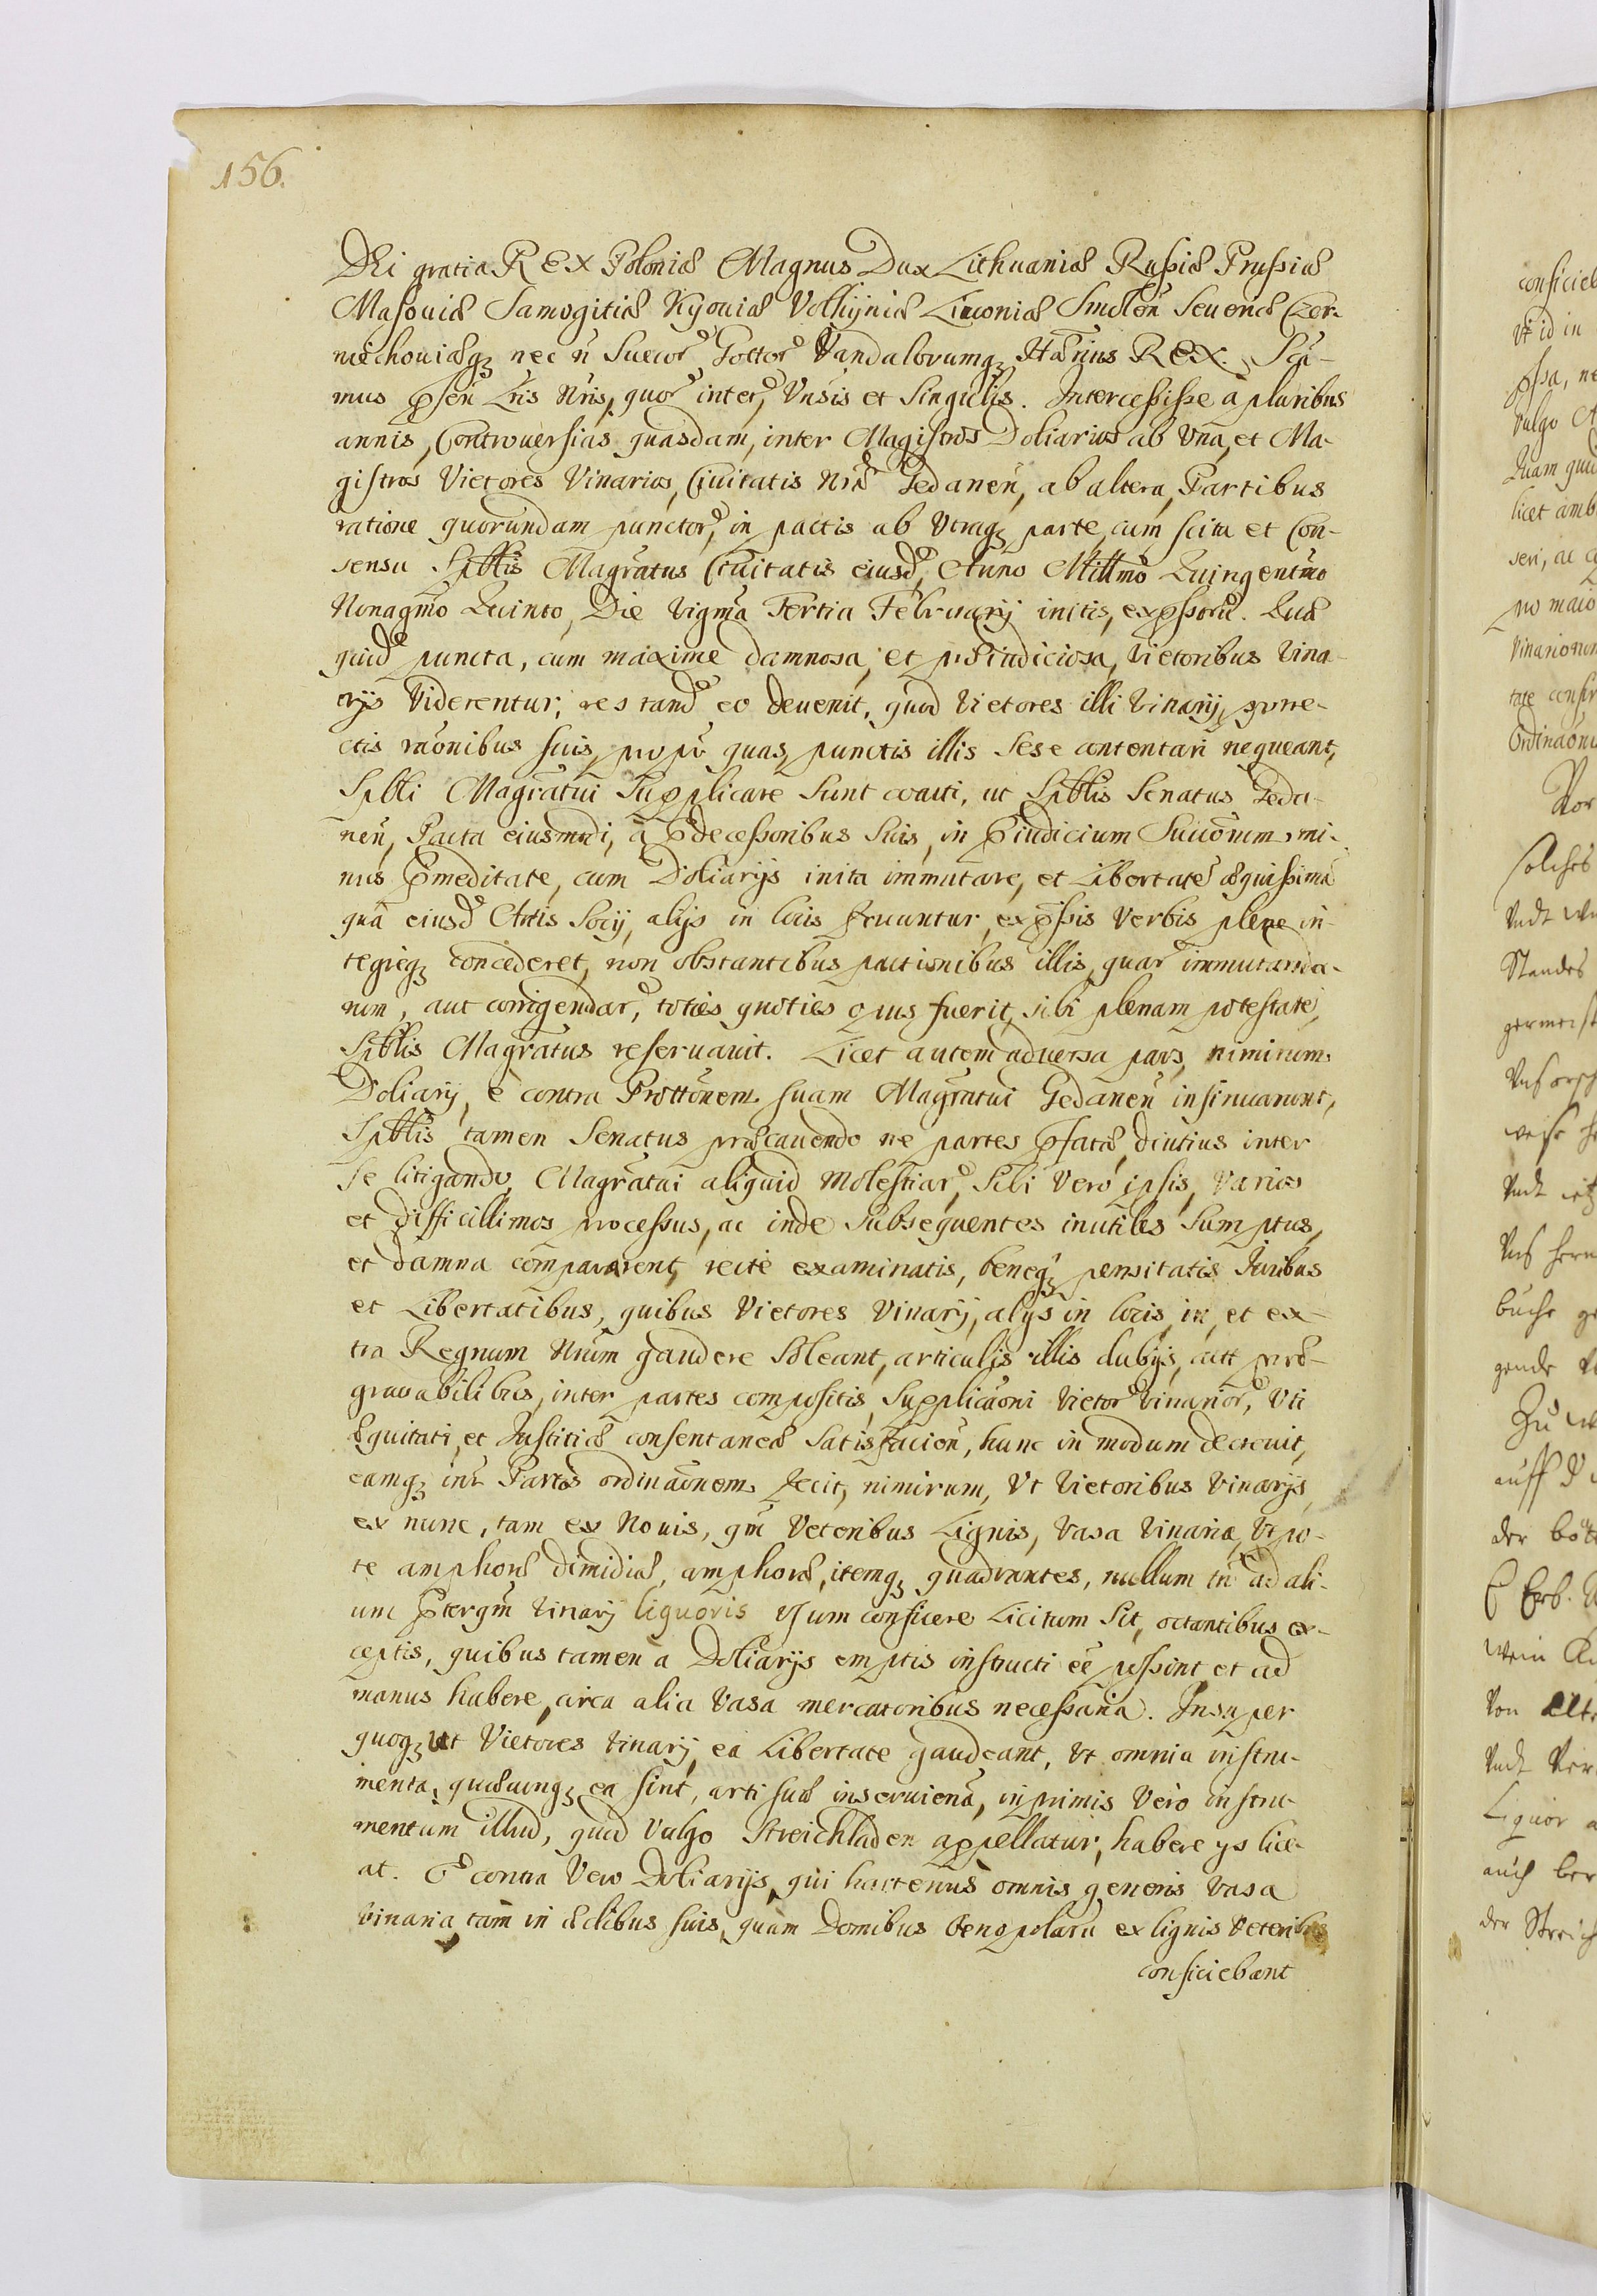 156.
DEi gratia REX Poloniæ Magnus Dux Lithuaniæ Rußiæ Prußiæ
Masouiæ Samogitiæ Kyouiæ Volhyniæ Liuoniæ Smoleñ Seueriæ Czer-
niechouiæq₃ nec ñ Suecor Gottor Vandalorumq₃ Hærius REX. Scĩ-
mus p̃señ Lr̃is Nr̃is, quor intere, Vñsis et Singulis. Intercessisse à pluribus
annis, Controuersias quasdam, inter Magistros Doliarios ab Vna, et Ma-
gistros Vietores Vinarios, Ciuitatis Nr̃æ Gedaneñ, ab altera, Partibus
ratione quorundam punctor, in pactis ab Vtraq₃ parte, cum scitu et Con-
sensu Spbl̃is Magrãtus Ciuitatis eiusd, Anno Mill̃mo Quingentm̃o
Nonagm̃o Quinto, Die Vigm̃a Tertia Februarij initis, exp̃ssoru. Quæ
quid puncta, cum maxime damnosa, et præiudiciosa, Vietoribus Vina-
rijs Viderentur, res tand eo deuenit, quod Vietores illi Vinarij, porre-
ctis rãonibus suis, propt̃ quas, punctis illis sese contentari nequeant,
Spbl̃i Magrãtui Supplicare sunt coacti, ut Spbl̃is Senatus Geda-
neñ, Pacta eiusmodi, à P̃decessoribus suis, in P̃iudicium Suũorum, mi-
nus P̃meditate, cum Doliarijs inita immutare, et Libertatẽ æquissimã
quã eiusd Artis Socij, alijs in locis fruuntur, exp̃ssis Verbis plene in-
tegreq₃ concederet, non obstantibus pactionibus illis, quar immutanda-
rum, aut corrigendar, toties quoties opus fuerit, sibi plenam potestatẽ,
Spbl̃is Magrãtus reseruauit. Licet autem aduersa pars, nimirum
Doliarij, è contra Prottõnem suam Magrãtui Gedaneñ insinuarunt,
Spbl̃is tamen Senatus præcauendo ne partes p̃fatæ, diutius inter
se litigando, Magrãtui aliquid Molestiar, Sibi Verò ipsis, Varios
et difficillimos processus, ac inde Subsequentes inutiles Sumptus,
et damna compararent, recte examinatis, beneq₃ pensitatis Juribus
et Libertatibus, quibus Vietores Vinarij, alijs in locis, in, et ex-
tra Regnum Nr̃um gaudere Soleant, articulis illis dubijs, aut præ-
grauabilibus, inter partes compositis, Supplicãoni Vietor Vinarior, Vti
Æquitati, et Justitiæ consentaneæ Satisfacieñ, hunc in modum decreuit,
eamq₃ int̃ Partes ordinãonem fecit, nimirum, Vt Vietoribus Vinarijs,
ex nunc, tam ex Nouis, qm̃ Veteribus Lignis, Vasa Vinaria, Vtpo-
te amphoras dimidias, amphoras, itemq₃ quadrantes, nullum tñ ad ali-
um P̃terqm̃ Vinarij liquoris vsum conficere Licitum Sit, octantibus ex-
ceptis, quibus tamen a Doliarijs emptis instructi eẽ possint et ad
manus habere, circa alia Vasa mercatoribus necessaria. Insuper
quoq₃ ut Vietores Vinarij, ea Libertate gaudeant, Vt omnia instru-
menta, quæcunq₃ ea sint, arti suæ inseruienã, inprimis Verò instru-
mentum illud, quod Vulgo Streichladen appellatur, habere ijs lice-
at. E contra Vero Doliarijs, qui hactenus omnis generis Vasa
Vinaria tam in Ædibus suis, quam Domibus Oenopolaru ex lignis Veteribus
conficiebant
conficieb
Vt id in
p̃ssa, ne
Vulgo
Quam
licet amb
seri, ac
no maio
Vinariorum
tate
Ordinãoni
Vor
solches
Vndt
Standes
germeist
Vndt
buchs
gende
Zu
auff
der
E Erb.
wein
Von
Vndt
Liquor
auch
der Streich